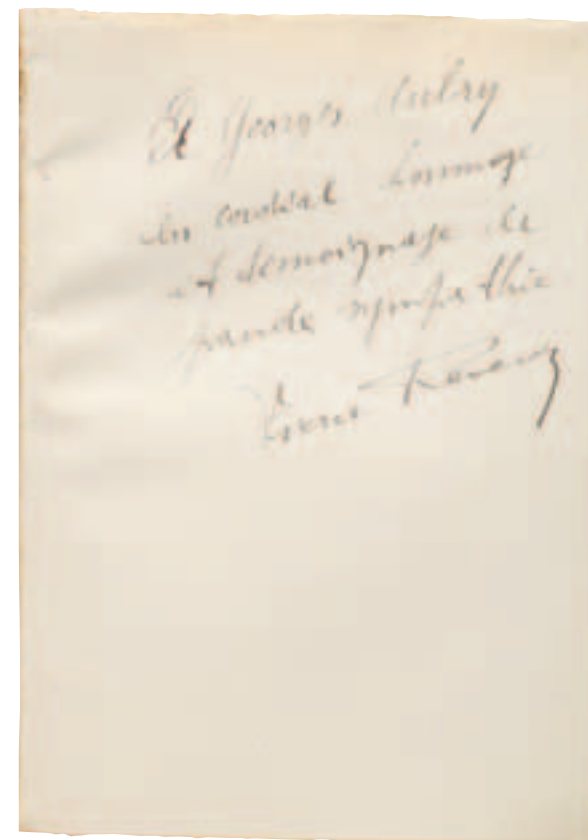 A Georges Aubry
en cordial hommage
et témoignage de
grande sympathie
Pierre Reverdy